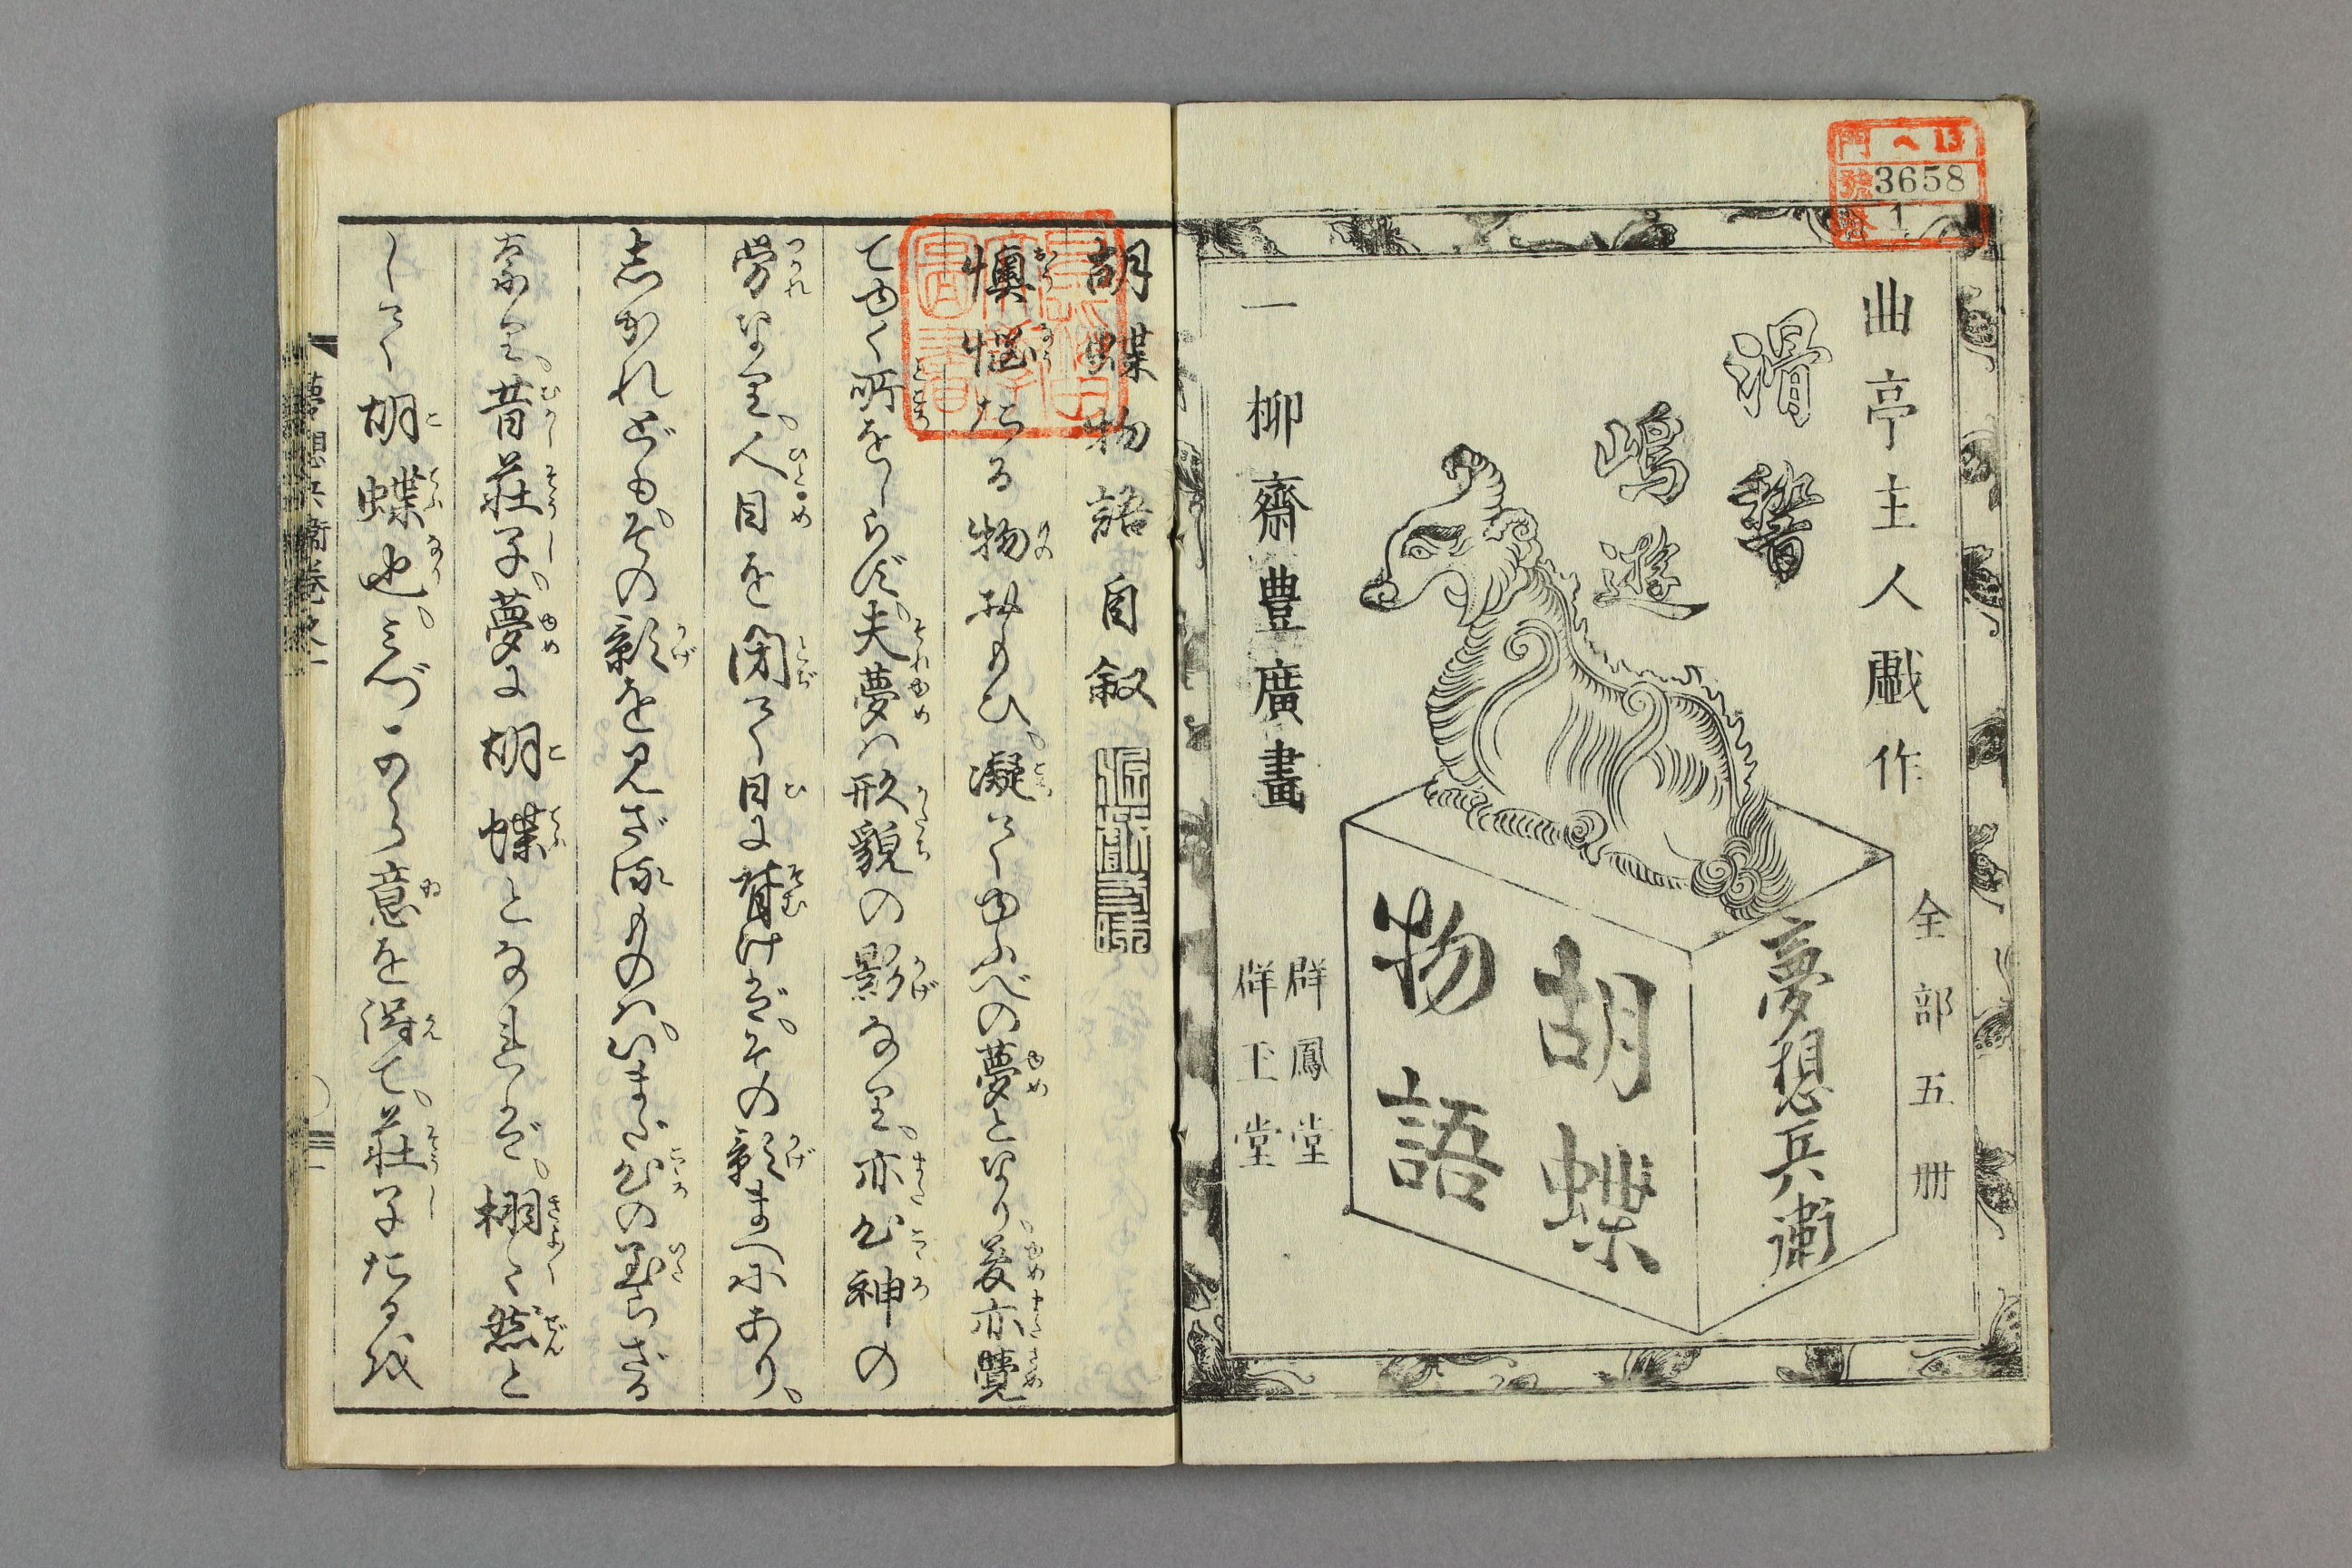 門 ヘ 13
號 3658
卷 1
曲亭主人戯作
全部五冊
滑
嶋遊
夢想兵衛
胡蝶
物語
一柳齋豊廣畫
群鳳堂
群玉堂
胡蝶物語自叙
懊悩たる物おもひ。凝てゆふべの夢となり。夢亦覺
てゆく所をしらず。夫夢は形貌の影なり。亦心神の
労なり。人目を閉て日に背けば。その影まへにあり。
しかれども。その影を見ざるものは。いまだ心の至らざる
なり。昔荘子。夢に胡蝶となれば。栩〻然と
して胡蝶也。みづから意を得て。荘子たるを
夢想兵衛巻之一